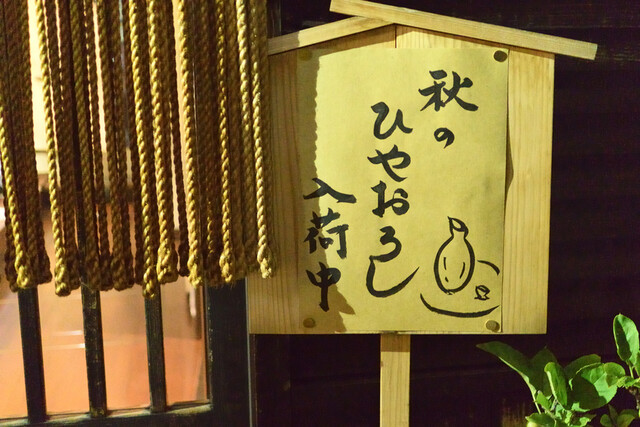 秋の
ひやおろし
入荷中